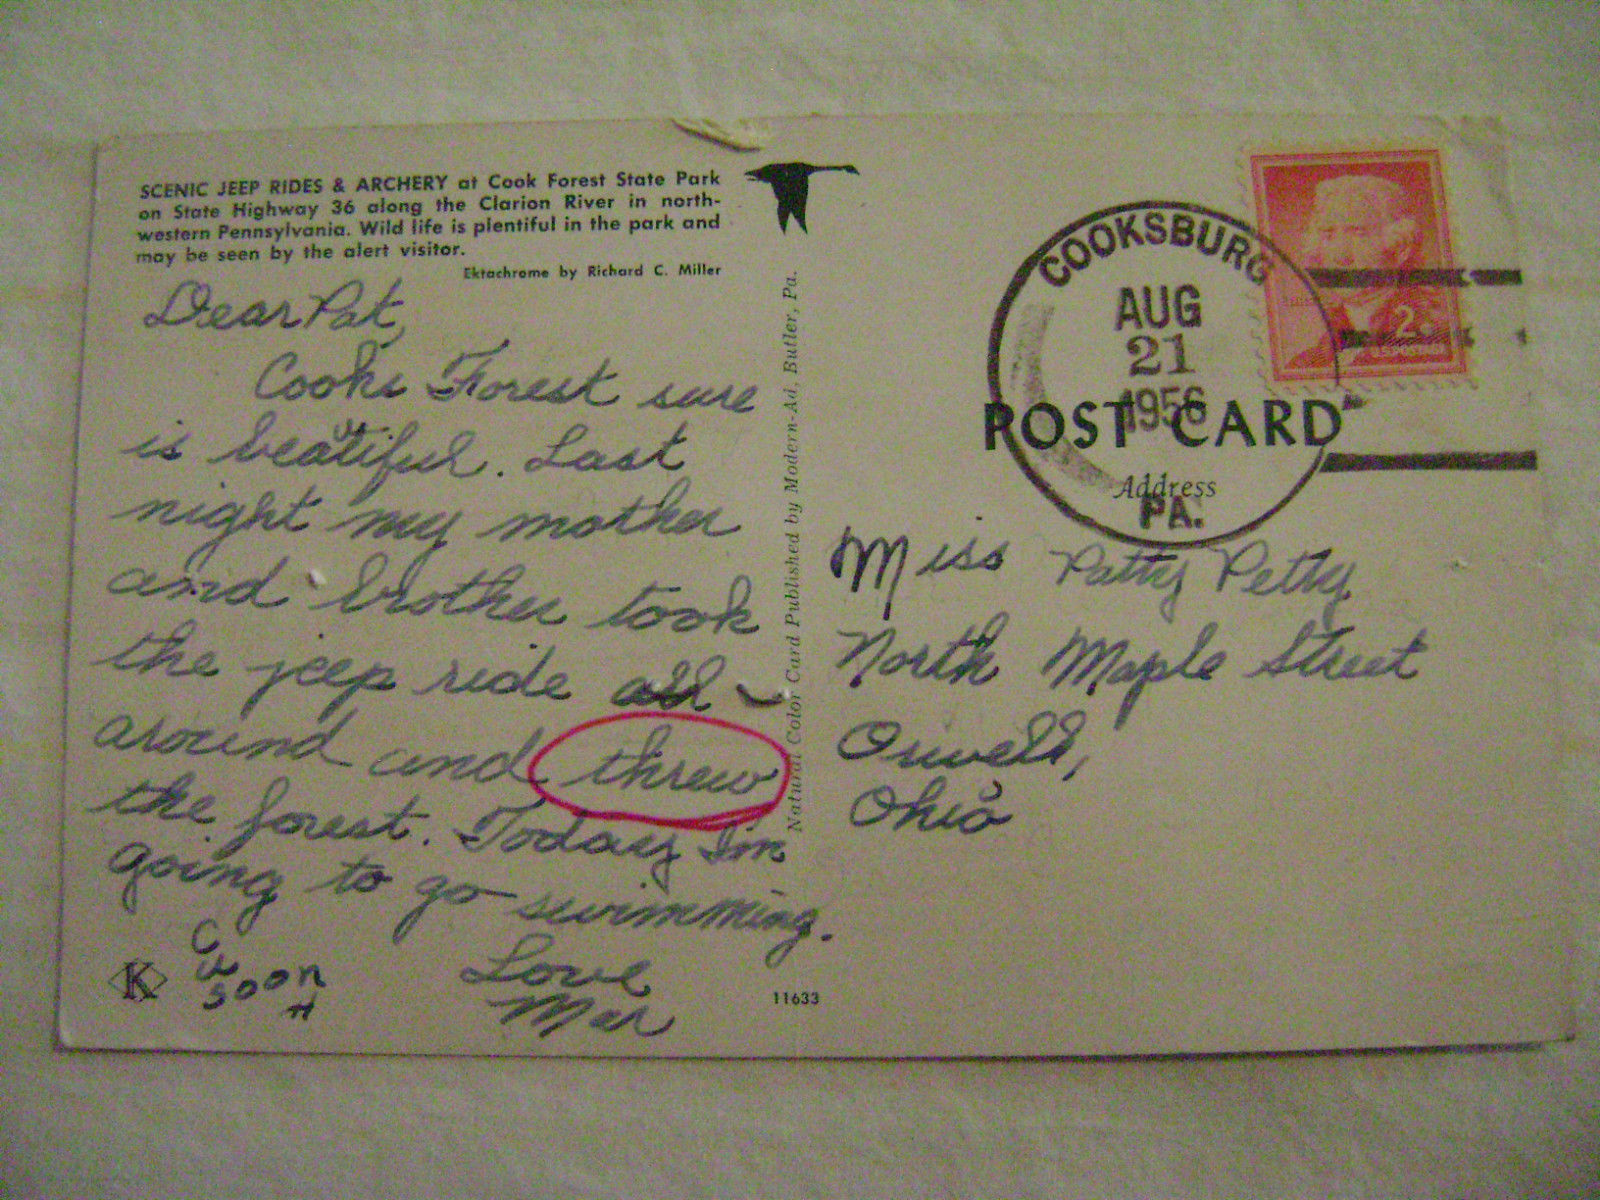 SCENIC JEEP RIDES & ARCHERY at Cook Forest State Park
on State Highway 36 along the Clarion River in north-
western Pennsylvania. Wild life is plentiful in the park and
may be seen by the alert visitor.
Ektachrome by Richard C. Miller
Dear Pat,
Cooks Forest sure
is beautiful. Last
night my mother
and brother took
the jeep ride all
around and threw
the forest. Today I'm
going to go swimming.
Love
Mar
C
U
soon
K
11633
Natural Color Card Published by Modern-Ad, Butler, Pa.
COOKSBURG
AUG
21
1956
PA.
2¢
U.S. POSTAGE
POST CARD
Address
Miss Patty Petty
North Maple Street
Orwell,
Ohio